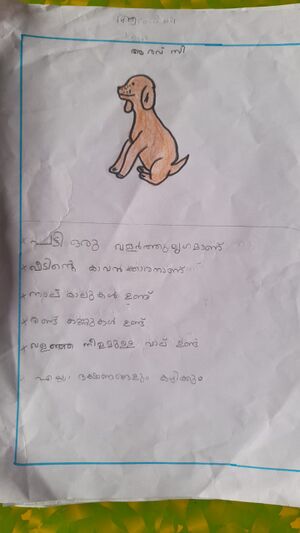 ആദവ് സി
പട്ടി ഒരു വളർത്തുമൃഗമാണ്
വീടിന്റെ കാവൽക്കാരനാണ്
നാല് കാലുകൾ ഉണ്ട്
രണ്ട് കണ്ണുകൾ ഉണ്ട്
വളഞ്ഞ നീളമുള്ള വാല് ഉണ്ട്
എല്ലാ ഭക്ഷണങ്ങളും കഴിക്കും